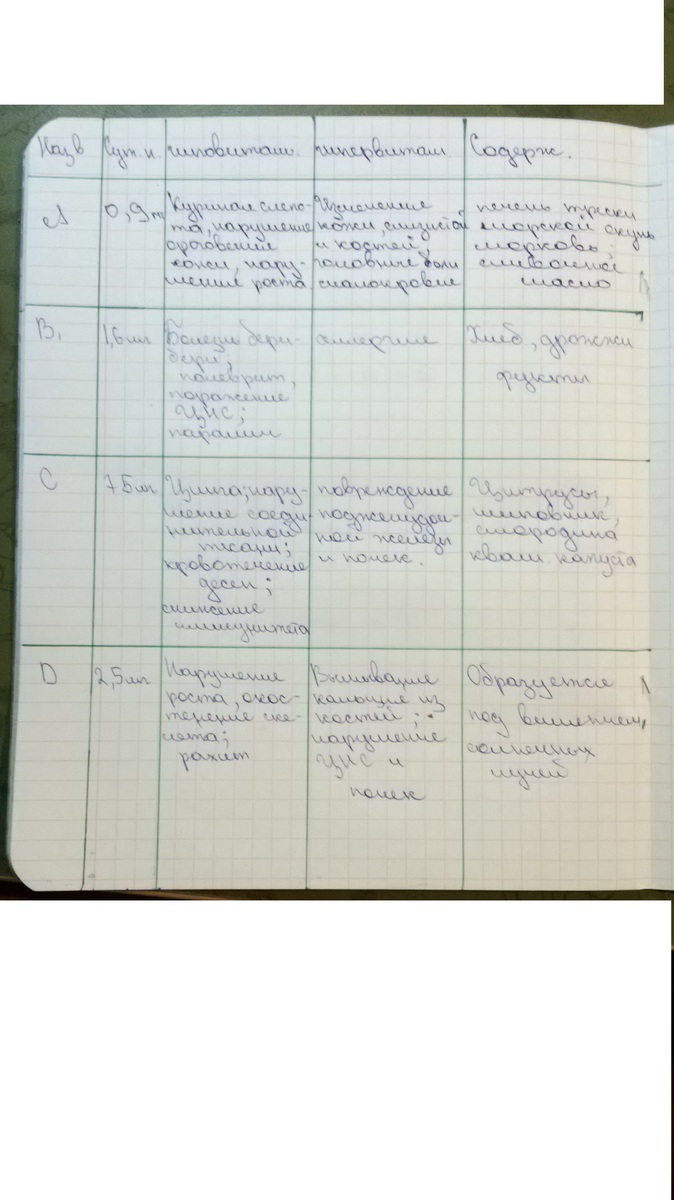 Назв
Сут. н.
гиповитам.
гипервитам.
Содерж.
А
0,9мг
Куриная слепо-
та, нарушение
ороговения
кожи, нару-
шения роста
Изменение
кожи, слизистой
и костей;
головные боли
малокровие
печень трески
морской окунь
морковь;
сливочное
масло
В₁
1,6мг
Болезнь бери-
бери;
полеврит,
поражение
ЦНС;
паралич
аллергия
Хлеб, дрожжи
фрукты
С
75мг
Цинга; нару-
шение соеди-
нительной
ткани;
кровотечение
десен;
снижение
иммунитета
повреждение
поджелудоч-
ной железы
и почек.
Цитрусы,
шиповник,
смородина
кваш. капуста
D
2,5мг
Нарушение
роста, окос-
тенение ске-
лета;
рахит
Вымывание
кальция из
костей;
нарушение
ЦНС и
почек
Образуется
под влиянием
солнечных
лучей